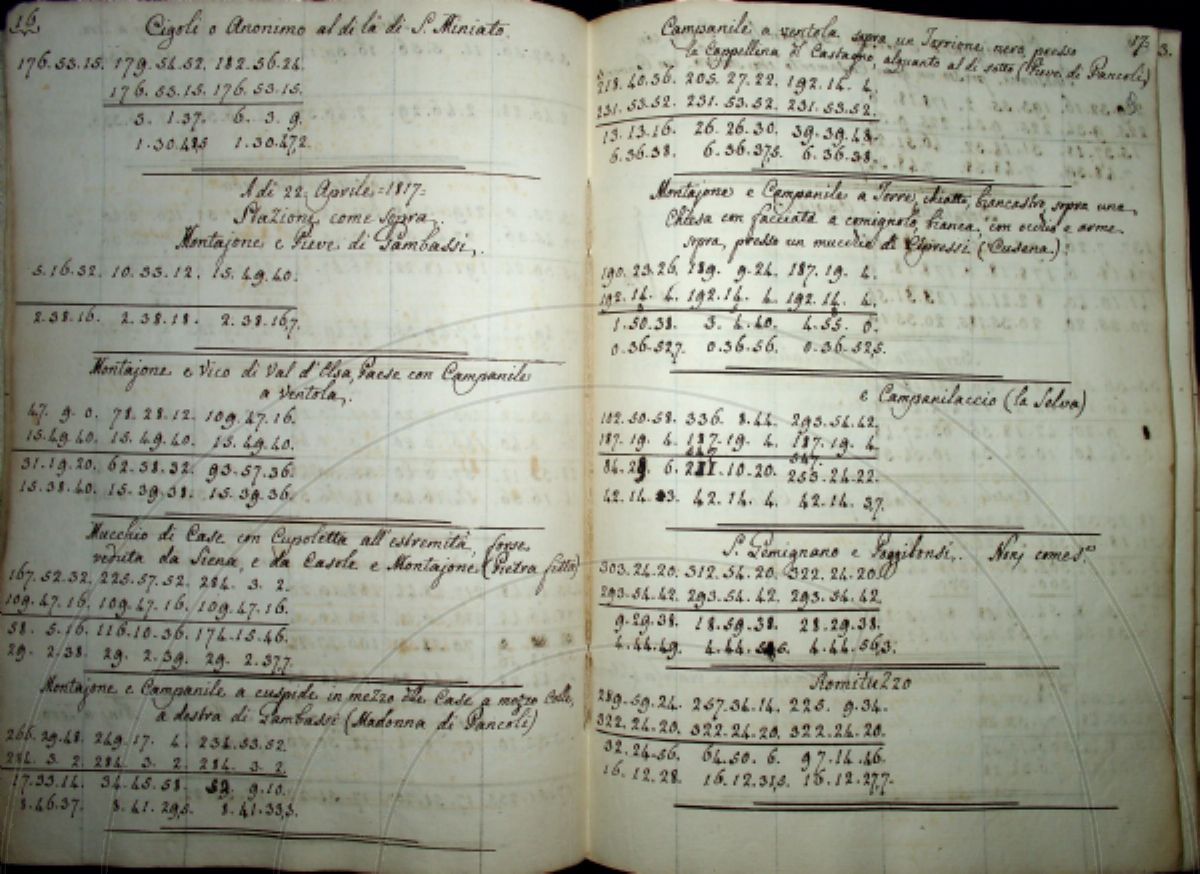 16.
Cigoli o Anonimo al di là di S. Miniato.
176.53.15. 179.54.52. 182.56.24.
176.53.15. 176.53.15.
3. 1.37. 6. 3. 9.
1.30.48,5 1.30.47,2.
A di 22 Aprile =1817=
Stazione come sopra.
Montajone e Pieve di Gambassi.
5.16.32. 10.33.12. 15.49.40.
2.38.16. 2.38.18. 2.38.16,7.
Montajone e Vico di Val d'Elsa, Paese con Campanile
a ventola.
47. 9. 0. 78.28.12. 109.47.16.
15.49.40. 15.49.40. 15.49.40.
31.19.20. 62.38.32. 93.57.36.
15.38.40. 15.39.38. 15.39.36.
Mucchio di Case con Cupoletta all'estremità, forse
veduta da Siena, e da Casole e Montajone (Pietra fitta)
167.52.32. 225.57.52. 284. 3. 2.
109.47.16. 109.47.16. 109.47.16.
58. 5.16. 116.10.36. 174.15.46.
29. 2.38. 29. 2.39. 29. 2.37,7.
Montajone e Campanile a cuspide in mezzo alle Case a mezzo Colle,
a destra di Gambassi (Madonna di Pancoli)
266.29.48. 249.17. 4. 231.53.52.
284. 3. 2. 284. 3. 2. 284. 3. 2.
17.33.14. 34.45.58. 52. 9.10.
8.46.37. 8.41.29,5. 8.41.33,3.
17.
3.
Campanile a ventola sopra un Torrione nero presso
la Cappellina d'il Castagno, alquanto al di sotto (Pieve di Pancoli)
218.40.36. 205.27.22. 192.14. 4.
231.53.52. 231.53.52. 231.53.52.
13.13.16. 26.26.30. 39.39.48.
6.36.38. 6.36.37,5. 6.36.38.
Montajone e Campanile a Torre, chiatto, biancastro, sopra una
Chiesa con facciata a comignolo, bianca, con occhio e arme
sopra, presso un mucchio di Cipressi (Cusona.)
190.23.26. 189. 9.24. 187.19. 4.
192.14. 4. 192.14. 4. 192.14. 4.
1.50.38. 3. 4.40. 4.55. 0.
0.36.52,7. 0.36.56. 0.36.52,5.
e Campanilaccio (la Selva)
102.50.58. 336. 8.44. 293.54.42.
187.19. 4. 187.19. 4. 187.19. 4.
547.
84.29. 6. 211.10.20. 253.24.22.
42.14. 33. 42.14. 4. 42.14. 3,7.
S. Gemignano e Poggibonsi. come s.
303.24.20. 312.54.20. 322.24.20.
293.54.42. 293.54.42. 293.54.42.
9.29.38. 18.59.38. 28.29.38.
4.44.49. 4.44.54,5. 4.44.56,3.
Romituzzo
289.59.24. 257.34.14. 225. 9.34.
322.24.20. 322.24.20. 322.24.20.
32.24.56. 64.50. 6. 97.14.46.
16.12.28. 16.12.31,5. 16.12.27,7.